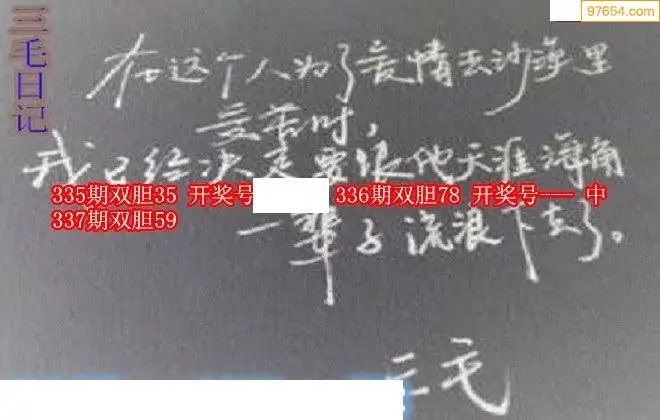 97654.com
三毛日记
在这个人为了爱情去沙漠里
受苦时，
我已经决定要跟他天涯海角
335期双胆35 开奖号 336期双胆78 开奖号--- 中
337期双胆59
一辈子流浪下去了。
三毛